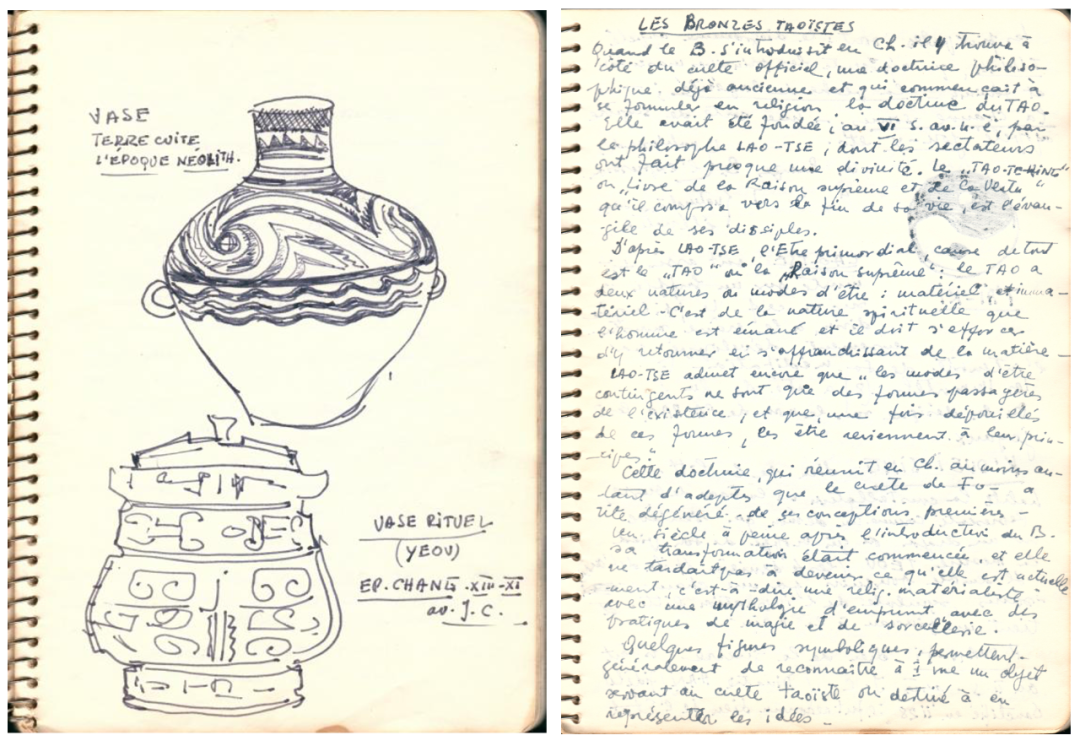 VASE
TERRE CUITE
L'EPOQUE NEOLITH.
VASE RITUEL
(YEOU)
EP. CHANG - XIII - XI
av. J. C.
LES BRONZES TAOÏSTES
Quand le B. s'introduisit en Ch. il y trouva à
côté du culte officiel, une doctrine philoso-
phique déjà ancienne et qui commençait à
se formuler en religion la doctrine du TAO.
Elle avait été fondée, au VI s. av. n. è, par
le philosophe LAO-TSE, dont les sectateurs
ont fait presque une divinité. Le „TAO-TCHING"
ou „Livre de la Raison suprême et de la Vertu"
qu'il composa vers la fin de sa vie, est l'évan-
gile de ses disciples.
D'après LAO-TSE, l'Etre primordial, cause de tout
est le „TAO" ou la „Raison suprême"; le TAO a
deux natures ou modes d'être : matériel et imma-
tériel. C'est de la nature spirituelle que
l'homme est émané et il doit s'efforcer
d'y retourner en s'affranchissant de la matière -
LAO-TSE admet encore que „les modes d'être
contingents ne sont que des formes passagères
de l'existence, et que, une fois dépouillés
de ces formes, les être reviennent à leur prin-
cipes."
Cette doctrine, qui réunit en Ch. au moins au-
tant d'adeptes que le culte de Fo - a
vite dégénéré de ses conceptions premières -
Un siècle à peine après l'introduction du B.
sa transformation était commencée, et elle
ne tardait pas à devenir ce qu'elle est actuelle
-ment, c'est-à-dire une relig. matérialiste -
avec une mythologie d'emprunt avec des
pratiques de magie et de sorcellerie.
Quelques figures symboliques, permettent
généralement de reconnaître à 1 vue un objet
servant au culte taoïste ou destiné à en
représenter les idées -